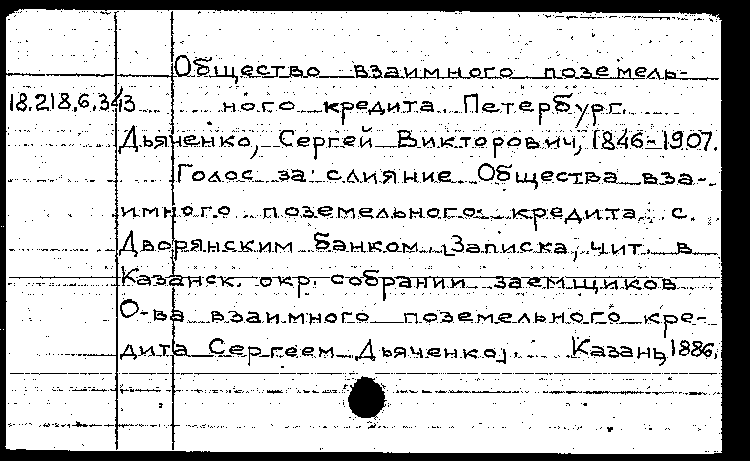 Общество взаимного поземель-
18.218.6.343 ного кредита. Петербург.
Дьяченко, Сергей Викторович, 1846-1907.
Голос за слияние Общества вза-
имного поземельного кредита с
Дворянским банком. [Записка, чит. в
Казанск. окр. собрании заемщиков
О-ва взаимного поземельного кре-
дита Сергеем Дьяченко]. Казань, 1886.